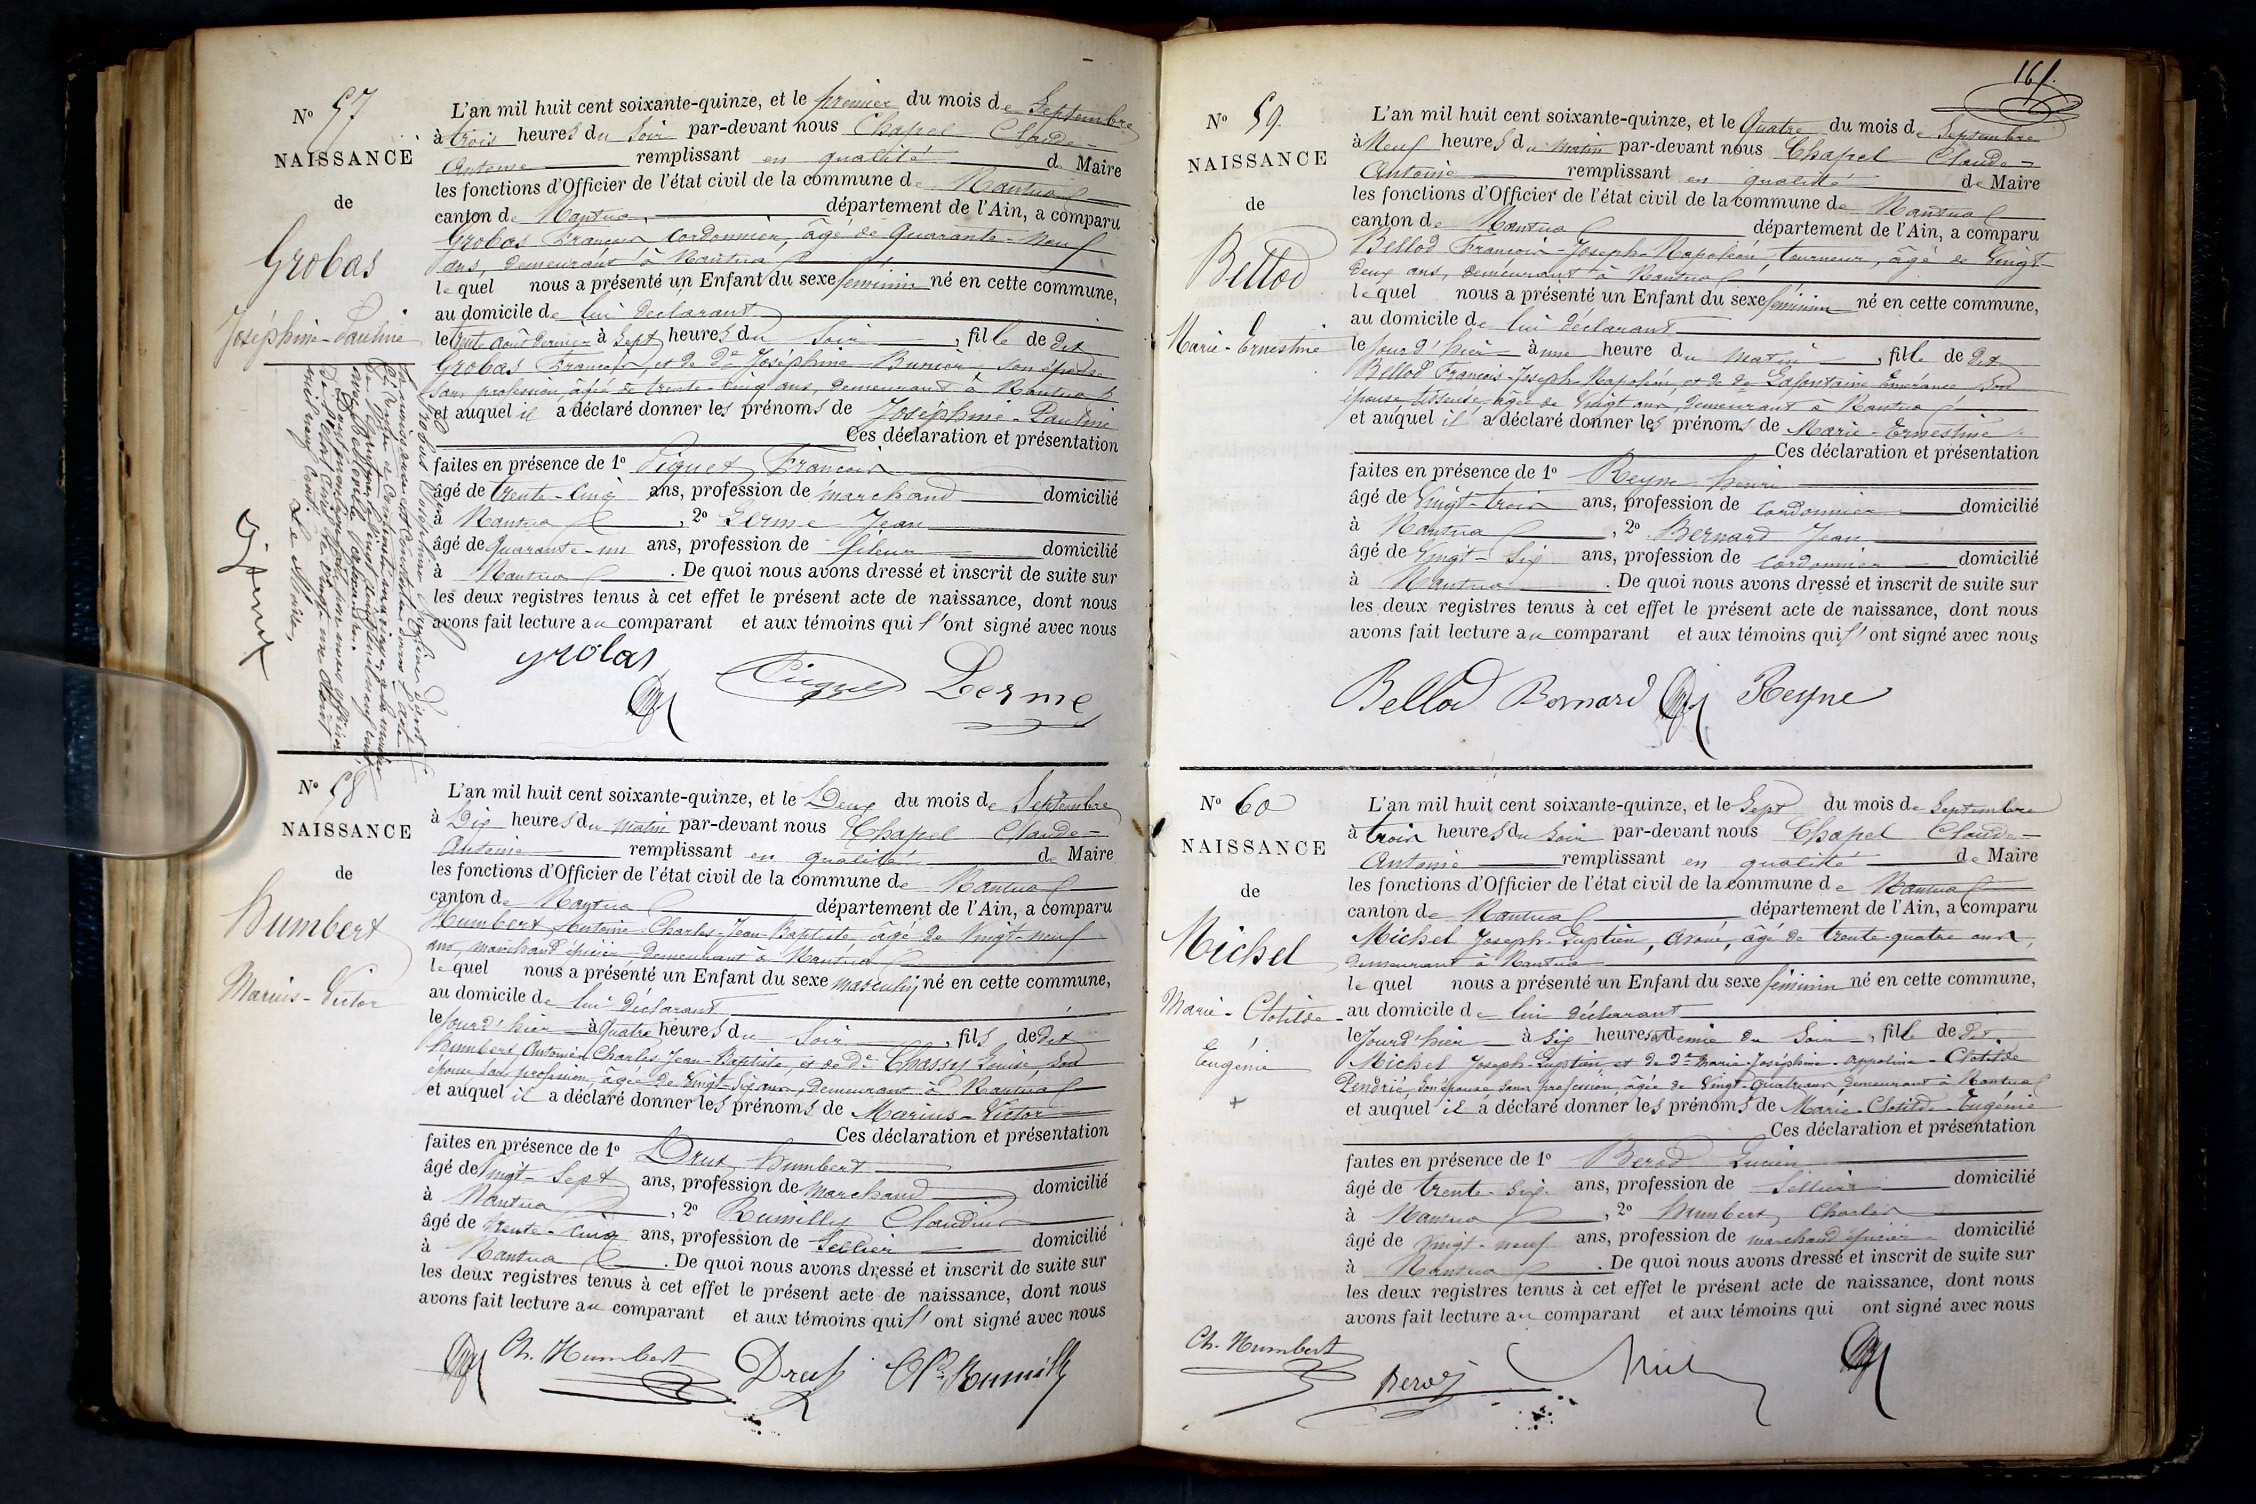 No 57
NAISSANCE
de
Grobas
Joséphine-Pauline
L'an mil huit cent soixante-quinze, et le premier du mois de Septembre
à trois heures du Soir par-devant nous Chapel Claude-
Antoine remplissant en qualité de Maire
les fonctions d'Officier de l'état civil de la commune de Nantua
canton de Nantua, département de l'Ain, a comparu
Grobas François cordonnier, âgé de Quarante-neuf
ans, demeurant à Nantua
le quel nous a présenté un Enfant du sexe féminin né en cette commune,
au domicile de lui déclarant
le trente août dernier à Sept heures du Soir, fille de dit
Grobas François, et de De Joséphine Bunier son épouse
sans profession, âgée de trente-cinq ans, demeurant à Nantua
et auquel il a déclaré donner les prénoms de Joséphine-Pauline
Ces déclaration et présentation
faites en présence de 1o Piquet François
âgé de trente-cinq ans, profession de marchand domicilié
à Nantua, 2o Lerme Jean
âgé de quarante-un ans, profession de fileur domicilié
à Nantua. De quoi nous avons dressé et inscrit de suite sur
les deux registres tenus à cet effet le présent acte de naissance, dont nous
avons fait lecture au comparant et aux témoins qui l'ont signé avec nous
Grobas
Piquet Lerme
Le Maire,
No 58
NAISSANCE
de
Humbert
Marius-Victor
L'an mil huit cent soixante-quinze, et le Deux du mois de Septembre
à Dix heures du Matin par-devant nous Chapel Claude-
Antoine remplissant en qualité de Maire
les fonctions d'Officier de l'état civil de la commune de Nantua
canton de Nantua département de l'Ain, a comparu
Humbert Antoine-Charles-Jean-Baptiste, âgé de Vingt-neuf
ans, marchand épicier, demeurant à Nantua
le quel nous a présenté un Enfant du sexe masculin né en cette commune,
au domicile de lui déclarant
le jour d'hier à quatre heures du Soir, fils de dit
Humbert Antoine Charles Jean-Baptiste, et de De Chassy Louise, son
épouse sans profession, âgée de Vingt-six ans, demeurant à Nantua
et auquel il a déclaré donner les prénoms de Marius-Victor
Ces déclaration et présentation
faites en présence de 1o Drut Humbert
âgé de Vingt-Sept ans, profession de Marchand domicilié
à Nantua, 2o Rumilly Claudius
âgé de trente-cinq ans, profession de Sellier domicilié
à Nantua. De quoi nous avons dressé et inscrit de suite sur
les deux registres tenus à cet effet le présent acte de naissance, dont nous
avons fait lecture au comparant et aux témoins qui l'ont signé avec nous
Ch. Humbert Drut Cl. Rumilly
161.
No 59.
NAISSANCE
de
Bellod
Marie-Ernestine
L'an mil huit cent soixante-quinze, et le Quatre du mois de Septembre
à Neuf heures du matin par-devant nous Chapel Claude-
Antoine remplissant en qualité de Maire
les fonctions d'Officier de l'état civil de la commune de Nantua
canton de Nantua département de l'Ain, a comparu
Bellod François-Joseph-Napoléon, tourneur, âgé de Vingt-
deux ans, demeurant à Nantua
le quel nous a présenté un Enfant du sexe féminin né en cette commune,
au domicile de lui déclarant
le jour d'hier à une heure du matin, fille de dit
Bellod François-Joseph-Napoléon, et de De Lafontaine Emérance son
épouse, tisseuse, âgée de Vingt ans, demeurant à Nantua
et auquel il a déclaré donner les prénoms de Marie-Ernestine
Ces déclaration et présentation
faites en présence de 1o Reyne henri
âgé de Vingt-trois ans, profession de cordonnier domicilié
à Nantua, 2o Bernard Jean
âgé de Vingt-Six ans, profession de cordonnier domicilié
à Nantua. De quoi nous avons dressé et inscrit de suite sur
les deux registres tenus à cet effet le présent acte de naissance, dont nous
avons fait lecture au comparant et aux témoins qui l'ont signé avec nous
Bellod Bernard Reyne
No 60
NAISSANCE
de
Michel
Marie-Clotilde-
Eugénie
+
L'an mil huit cent soixante-quinze, et le Sept du mois de Septembre
à trois heures du Soir par-devant nous Chapel Claude-
Antoine remplissant en qualité de Maire
les fonctions d'Officier de l'état civil de la commune de Nantua
canton de Nantua département de l'Ain, a comparu
Michel Joseph-Luptien, avoué, âgé de trente-quatre ans,
demeurant à Nantua
le quel nous a présenté un Enfant du sexe féminin né en cette commune,
au domicile de lui déclarant
le jour d'hier à Six heures et demie du Soir, fille de dit
Michel Joseph-Luptien, et de De Marie-Joséphine-Appoline-Clotilde
son épouse sans profession, âgée de Vingt-quatre ans demeurant à Nantua
et auquel il a déclaré donner les prénoms de Marie-Clotilde-Eugénie
Ces déclaration et présentation
faites en présence de 1o Berod Lucien
âgé de trente-six ans, profession de Sellier domicilié
à Nantua, 2o Humbert, Charles
âgé de Vingt-neuf ans, profession de marchand épicier domicilié
à Nantua. De quoi nous avons dressé et inscrit de suite sur
les deux registres tenus à cet effet le présent acte de naissance, dont nous
avons fait lecture au comparant et aux témoins qui ont signé avec nous
Ch. Humbert
Berod